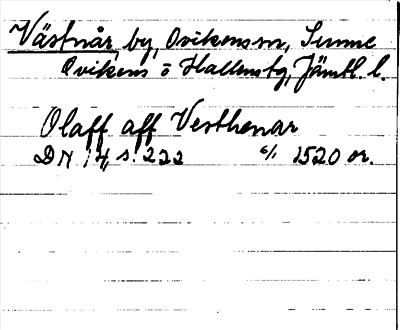 Västnår, by, Ovikens sn, Sunne
Ovikens o Hallens tg, Jämtl. l.
Olaff aff Vesthenar
DN 14, s. 222 c/1 1520 or.